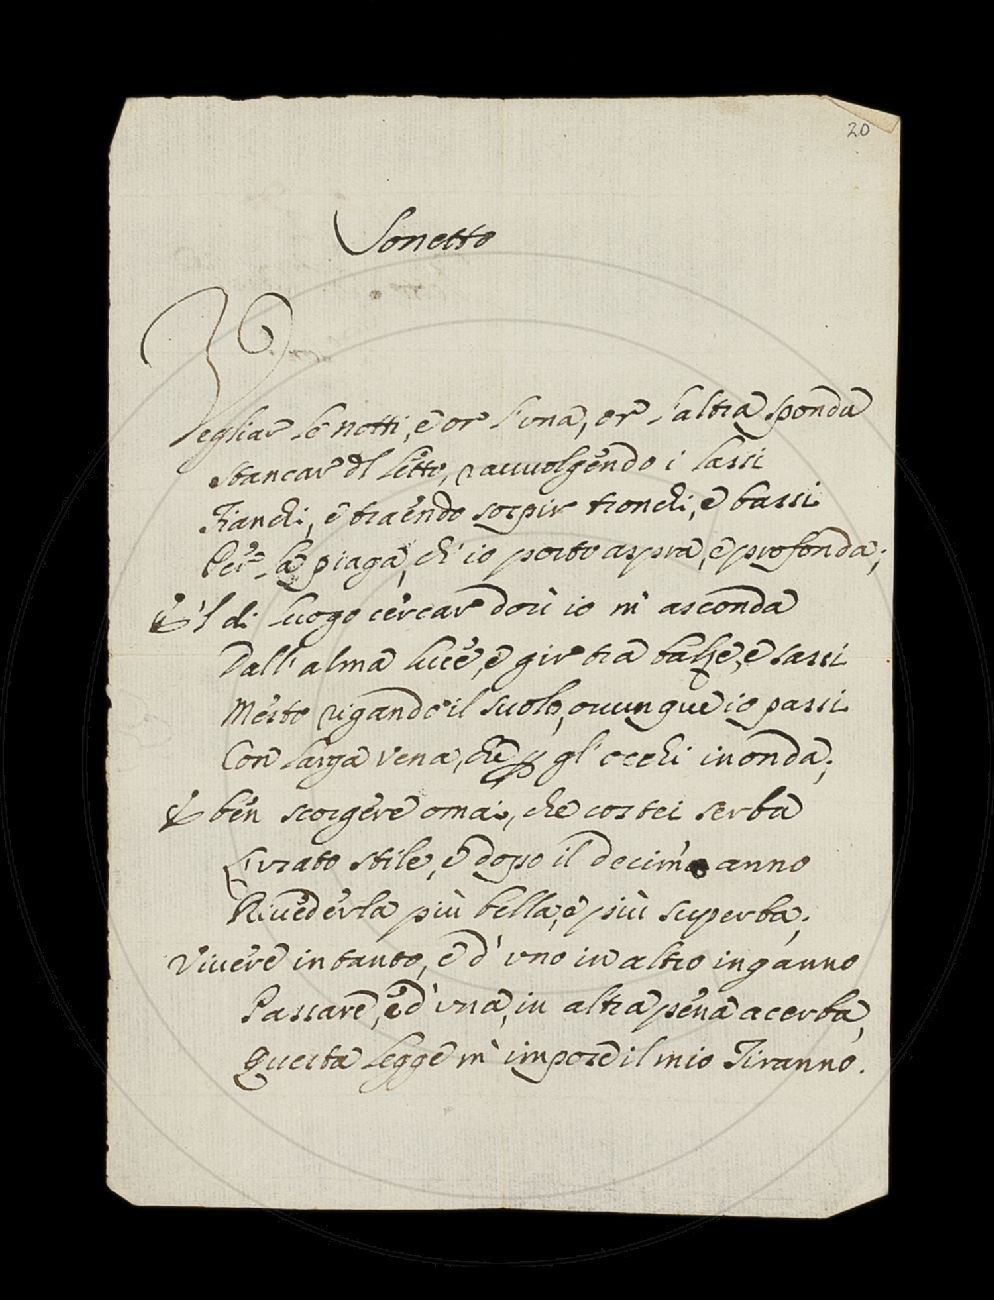 20
Sonetto
Vegliar le notti, e or l'una, or l'altra sponda
stancar dl letto, ravvolgendo i lassi
Fianchi, e traendo sospir tronchi, e bassi
Per la piaga, ch'io porto aspra, e profonda;
E 'l di luogo cercar dov' io m' asconda
Dall' alma luce, e gir tra balze, e sassi
Mesto rigando il suolo, ovunque io passi
Con larga vena, che gl' occhi inonda;
E ben scorgere omai, che costei serba
L'usato stile, e dopo il decimo anno
Rivederla più bella, e più superba;
Vivere intanto, e d' uno in altro inganno
Passare, e d' una, in altra pena acerba,
Questa legge m' impose il mio Tiranno.